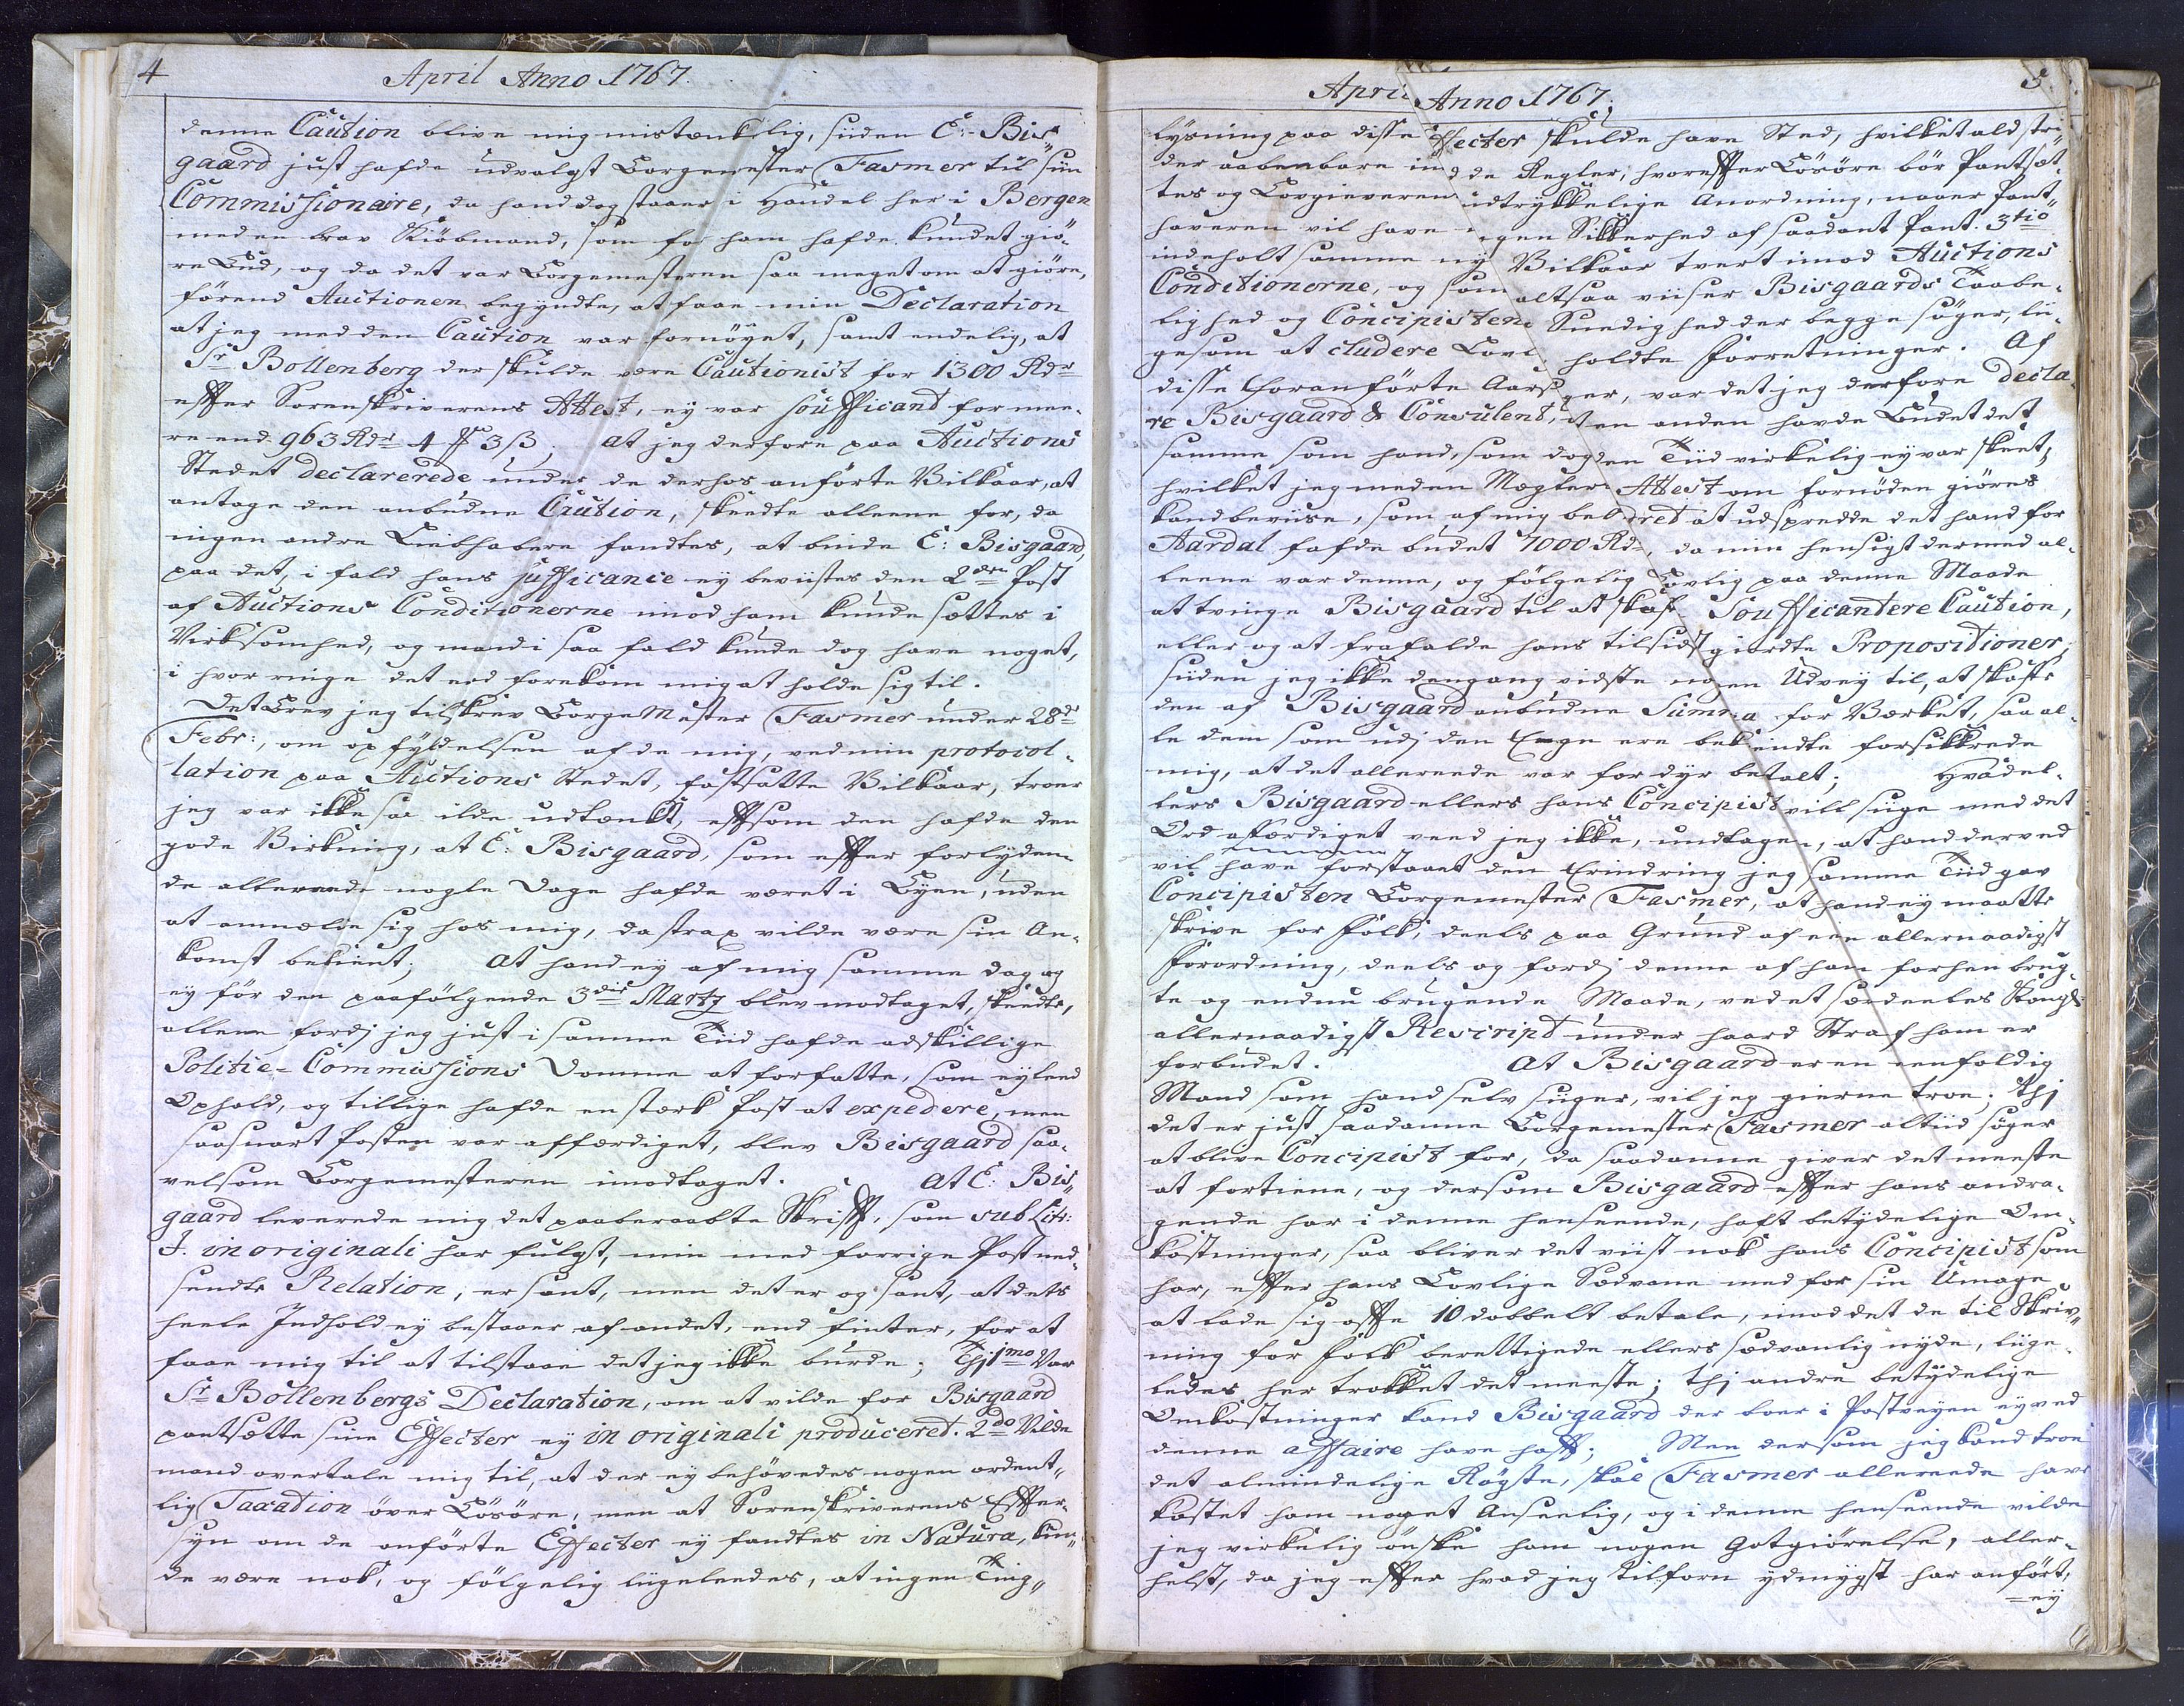 4
April Anno 1767.
denne Caution blive mig mistænkelig, siiden E:- Bis„
gaard just hafde udvalgt Borgemester Fasmer til siin
Commissionaire, da hand dog staaer i Handel her i Bergen
med en brav Kiöbmand, som for ham hafde kundet giö„
re Bud, og da det var Borgemesteren saa meget om at giöre,
förend Auctionen begyndte, at faae min Declaration
at jeg med den Caution var fornöyet, samt endelig, at
Sr Bollenberg der skulde være Cautionist for 1300 Rdr
efter Sorenskriverens Attest, ey var souficant for mee-
re end 963 Rdr 4 ₰ 3 ß; At jeg derfore paa Auctions
Stedet declarerede under de derhos anförte Vilkaar, at
antage den anbudne Caution, skeedte alleene for, da
ingen andre Liebhabere fandtes, at binde E: Bisgaard,
paa det, i fald hans sufficance ey beviistes den 2den Post
af Auctions Conditionerne imod ham kunde sættes i
Virksomhed, og mand i saa fald kunde dog have noget,
i hvor ringe det end forekom mig at holde sig til.
Det Brev jeg tilskrev Borge Mester Fasmer under 28de
Febr:, om opfyldelsen af de mig, ved min protocol-
lation paa Auctions Stedet, fastsatte Vilkaar, troer
jeg var ikke saa ilde udtænkt, eftersom den hafde den
gode Virkning, at E: Bisgaard, som efter forlyden-
de allereede nogle Dage hafde været i Byen, uden
at anmelde sig hos mig, da strax vilde være sin An-
komst bekient; At hand ey af mig samme dag og
ey för den paafölgende 3die Martz blev modtaget, skeedte,
alleene fordj jeg just i samme Tiid hafde adskillige
Politie-Commissions Domme at forfatte, som ey leed
Ophold, og tillige hafde en stærk Post at expedere, men
saasnart Posten var affærdiget, blev Bisgaard saa-
velsom Borgemesteren imodtaget. At E: Bis„
gaard leverede mig det paaberaabte Skrift, som sub Litr:
J. in originali har fulgt, min med forrige Post ned-
sendte Relation, er sant, men det er og sant, at dets
heele Indhold ey bestaaer af andet, end finter, for at
faae mig til at tilstaae det jeg ikke burde; Thj 1mo Var
Sr Bollenbergs Declaration, om at vilde for Bisgaard
pantsætte sine Effecter ey in originali produceret. 2do Vilde
mand overtale mig til, at der ey behövedes nogen ordent„
lig Taxation over Lösöre, men at Sorenskriverens Efter-
syn om de anförte Effecter ey fandtes in Natura, kun„
de være nok, og fölgelig liigeleedes, at ingen Ting„
5.
April Anno 1767.
lysning paa disse Effecter skulde have Sted, hvilket ald stri„
der aabenbare imod de Regler, hvorefter Lösöre bör Pantsæt„
tes og Lovgieveren udtrykkelige Anordning, naaer Pant„
haveren vil have nogen Sikkerhed af saadant Pant. 3tio
indeholt samme ny Vilkaar tvert imod Auctions
Conditionerne, og som altsaa viiser Bisgaards Taabe-
lighed og Concipistens Snedighed der begge söger, lii-
gesom at eludere Lovl. holdte Forretninger. Af
disse foranförte Aarsager, var det jeg derfore decla-
re Bisgaard & Consulent, at en anden havde Budet det
samme som hand, som dog den Tiid virkelig ey var skeet,
hvilket jeg med en Mægler Attest om fornöden giöres
kand beviise, som af mig beordret at udspredde det hand for
Aardal hafde budet 7000 Rdr, da min hensigt dermed al-
leene var denne, og fölgelig Lovlig paa denne Maade
at tvinge Bisgaard til at skaffe Soufficantere Caution,
eller og at frafalde hans tilsidst giordte Propositioner,
siiden jeg ikke dengang vidste nogen Udvey til, at skaffe
den af Bisgaard anbudne Summa for Værket, saa al-
le dem som udj den Eegn ere bekiendte forsikkrede
mig, at det allereede var for dyr betalt; Hvad el-
lers Bisgaard ellers hans Concipist vill siige med det
Ord affærdiget veed jeg ikke, undtagen, at hand derved
vil have forstaaet den Erindring jeg samme Tiid gav
Concipisten Borgemester Fasmer, at hand ey maatte
skrive for Folk, deels paa Grund af een allernaadigst
Forordning, deels og fordj denne af ham forhen brug-
te og endnu brugende Maade, ved et særdeeles Kongl:
allernaadigst Rescript under haard Straf ham er
forbudet. At Bisgaard er en eenfoldig
Mand som hand selv siiger, vil jeg gierne troe; Thj
det er just saadanne Borgemester Fasmer altiid söger
at blive Concipist for, da saadanne giver det meeste
at fortiene, og dersom Bisgaard efter hans andra-
gende har i denne henseende, haft betydelige Om-
kostninger, saa bliver det viist nok hans Concipist som
har, efter hans Lovlige Sædvane med for sin Umage
at lade sig ofte 10 dobbelt betale, imod det de til Skriv„
ning for Folk berettigede ellers sædvanlig nyde, liige-
ledes her trokket det meeste; thj andre betydelige
Omkostninger kand Bisgaard der boer i Postveyen ey ved
denne affaire have haft; Men dersom jeg kand troe
det almindelige Rögte, skal Fasmer allereede have
kostet ham noget Anseelig, og i denne henseende vilde
jeg virkelig önske ham nogen Gotgiörelse, aller-
helst, da jeg efter hvad jeg tilforn ydmygst har anfört,
ey